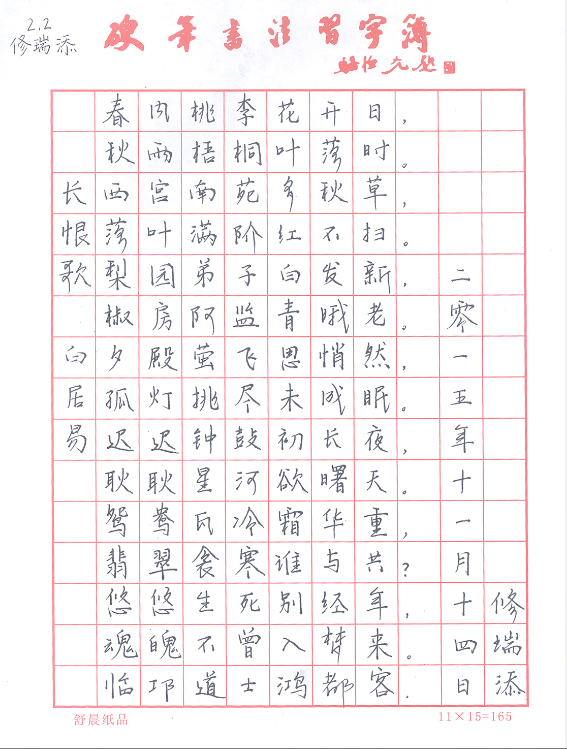 2.2
修瑞添
硬筆書法習字簿
长恨歌
白居易
春风桃李花开日，
秋雨梧桐叶落时。
西宫南苑多秋草，
落叶满阶红不扫。
梨园弟子白发新，
椒房阿监青哦老。
夕殿萤飞思悄然，
孤灯挑尽未成眠。
迟迟钟鼓初长夜，
耿耿星河欲曙天。
鸳鸯瓦冷霜华重，
翡翠衾寒谁与共？
悠悠生死别经年，
魂魄不曾入梦来。
临邛道士鸿都客.
二零一五年十一月十四日
修瑞添
舒晨纸品
11×15=165